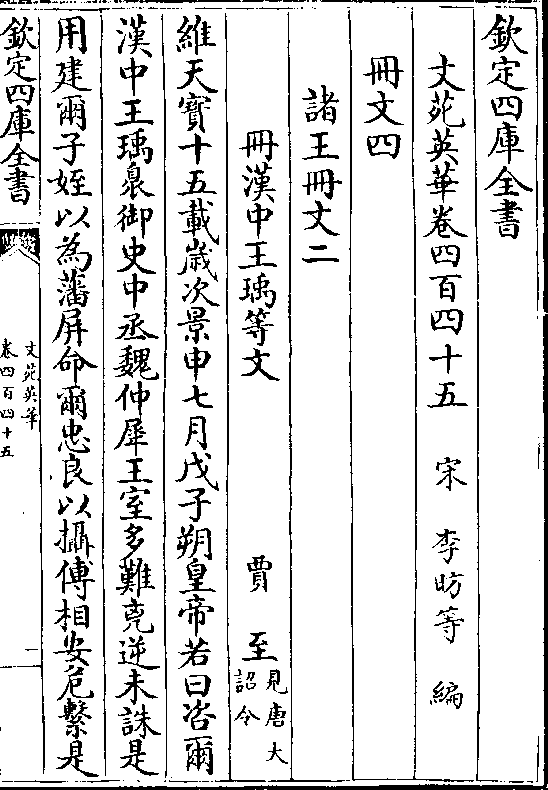 欽定四庫全書
文苑英華卷四百四十五　宋　李昉等　編
冊文四
諸王冊文二
冊漢中王瑀等文　賈　至見唐大詔令
維天寶十五載嵗次景申七月戊子朔皇帝若曰咨爾
漢中王瑀泉御史中丞魏仲犀王室多難兇逆未誅是
用建爾子姪以為藩屏命爾忠良以攝傅相安危繫是
欽定四庫全書
文苑英華
卷四百四十五
一